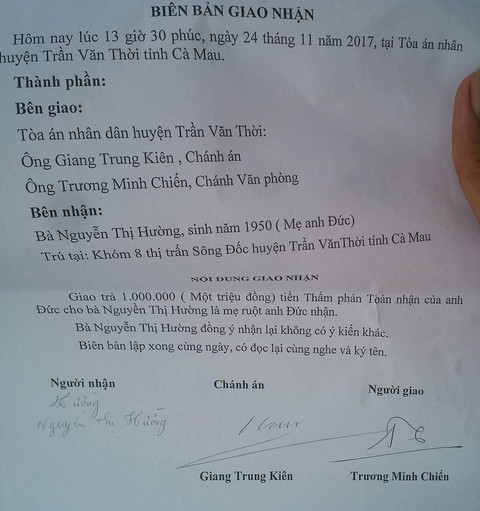 BIÊN BẢN GIAO NHẬN
Hôm nay lúc 13 giờ 30 phút, ngày 24 tháng 11 năm 2017, tại Tòa án nhân
huyện Trần Văn Thời tỉnh Cà Mau.
Thành phần:
Bên giao:
Tòa án nhân dân huyện Trần Văn Thời:
Ông Giang Trung Kiên , Chánh án
Ông Trương Minh Chiến, Chánh Văn phòng
Bên nhận:
Bà Nguyễn Thị Hường, sinh năm 1950 ( Mẹ anh Đức)
Trú tại: Khóm 8 thị trấn Sông Đốc huyện Trần VănThời tỉnh Cà Mau
NỘI DUNG GIAO NHẬN
Giao trả 1.000.000 ( Một triệu đồng) tiền Thẩm phán Toàn nhận của anh
Đức cho bà Nguyễn Thị Hường là mẹ ruột anh Đức nhận.
Bà Nguyễn Thị Hường đồng ý nhận lại không có ý kiến khác.
Biên bản lập xong cùng ngày, có đọc lại cùng nghe và ký tên.
Người nhận Chánh án Người giao
Hường
Nguyễn Thị Hường
Giang Trung Kiên Trương Minh Chiến